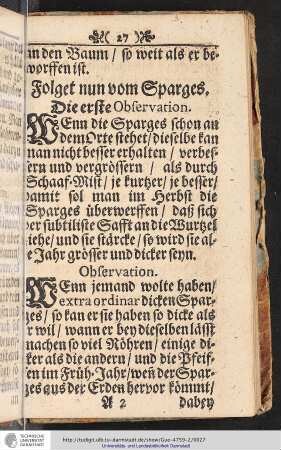 ( 27 )
an den Baum / so weit als er be-
worffen ist.
Folget nun vom Sparges.
Die erste Observation.
WEnn die Sparges schon an
dem Orte stehet / dieselbe kan
man nicht besser erhalten / verbes-
sern und vergrössern / als durch
Schaaf-Mist / je kurtzer / je besser /
damit sol man im Herbst die
Sparges überwerffen / daß sich
der subtiliste Safft an die Wurtzel
ziehe / und sie stärcke / so wird sie al-
le Jahr grösser und dicker seyn.
Observation.
WEnn jemand wolte haben /
extra ordinar dicken Spar-
ges / so kan er sie haben so dicke als
er wil / wann er bey dieselben lässt
machen so viel Röhren / einige di-
cker als die andern / und die Pfeif-
fen im Früh-Jahr / weñ der Spar-
ges aus der Erden hervor kömmt /
A 2 dabey
TECHNISCHE
UNIVERSITÄT
DARMSTADT
http://tudigit.ulb.tu-darmstadt.de/show/Gue-4759-2/0027
Universitäts- und Landesbibliothek Darmstadt